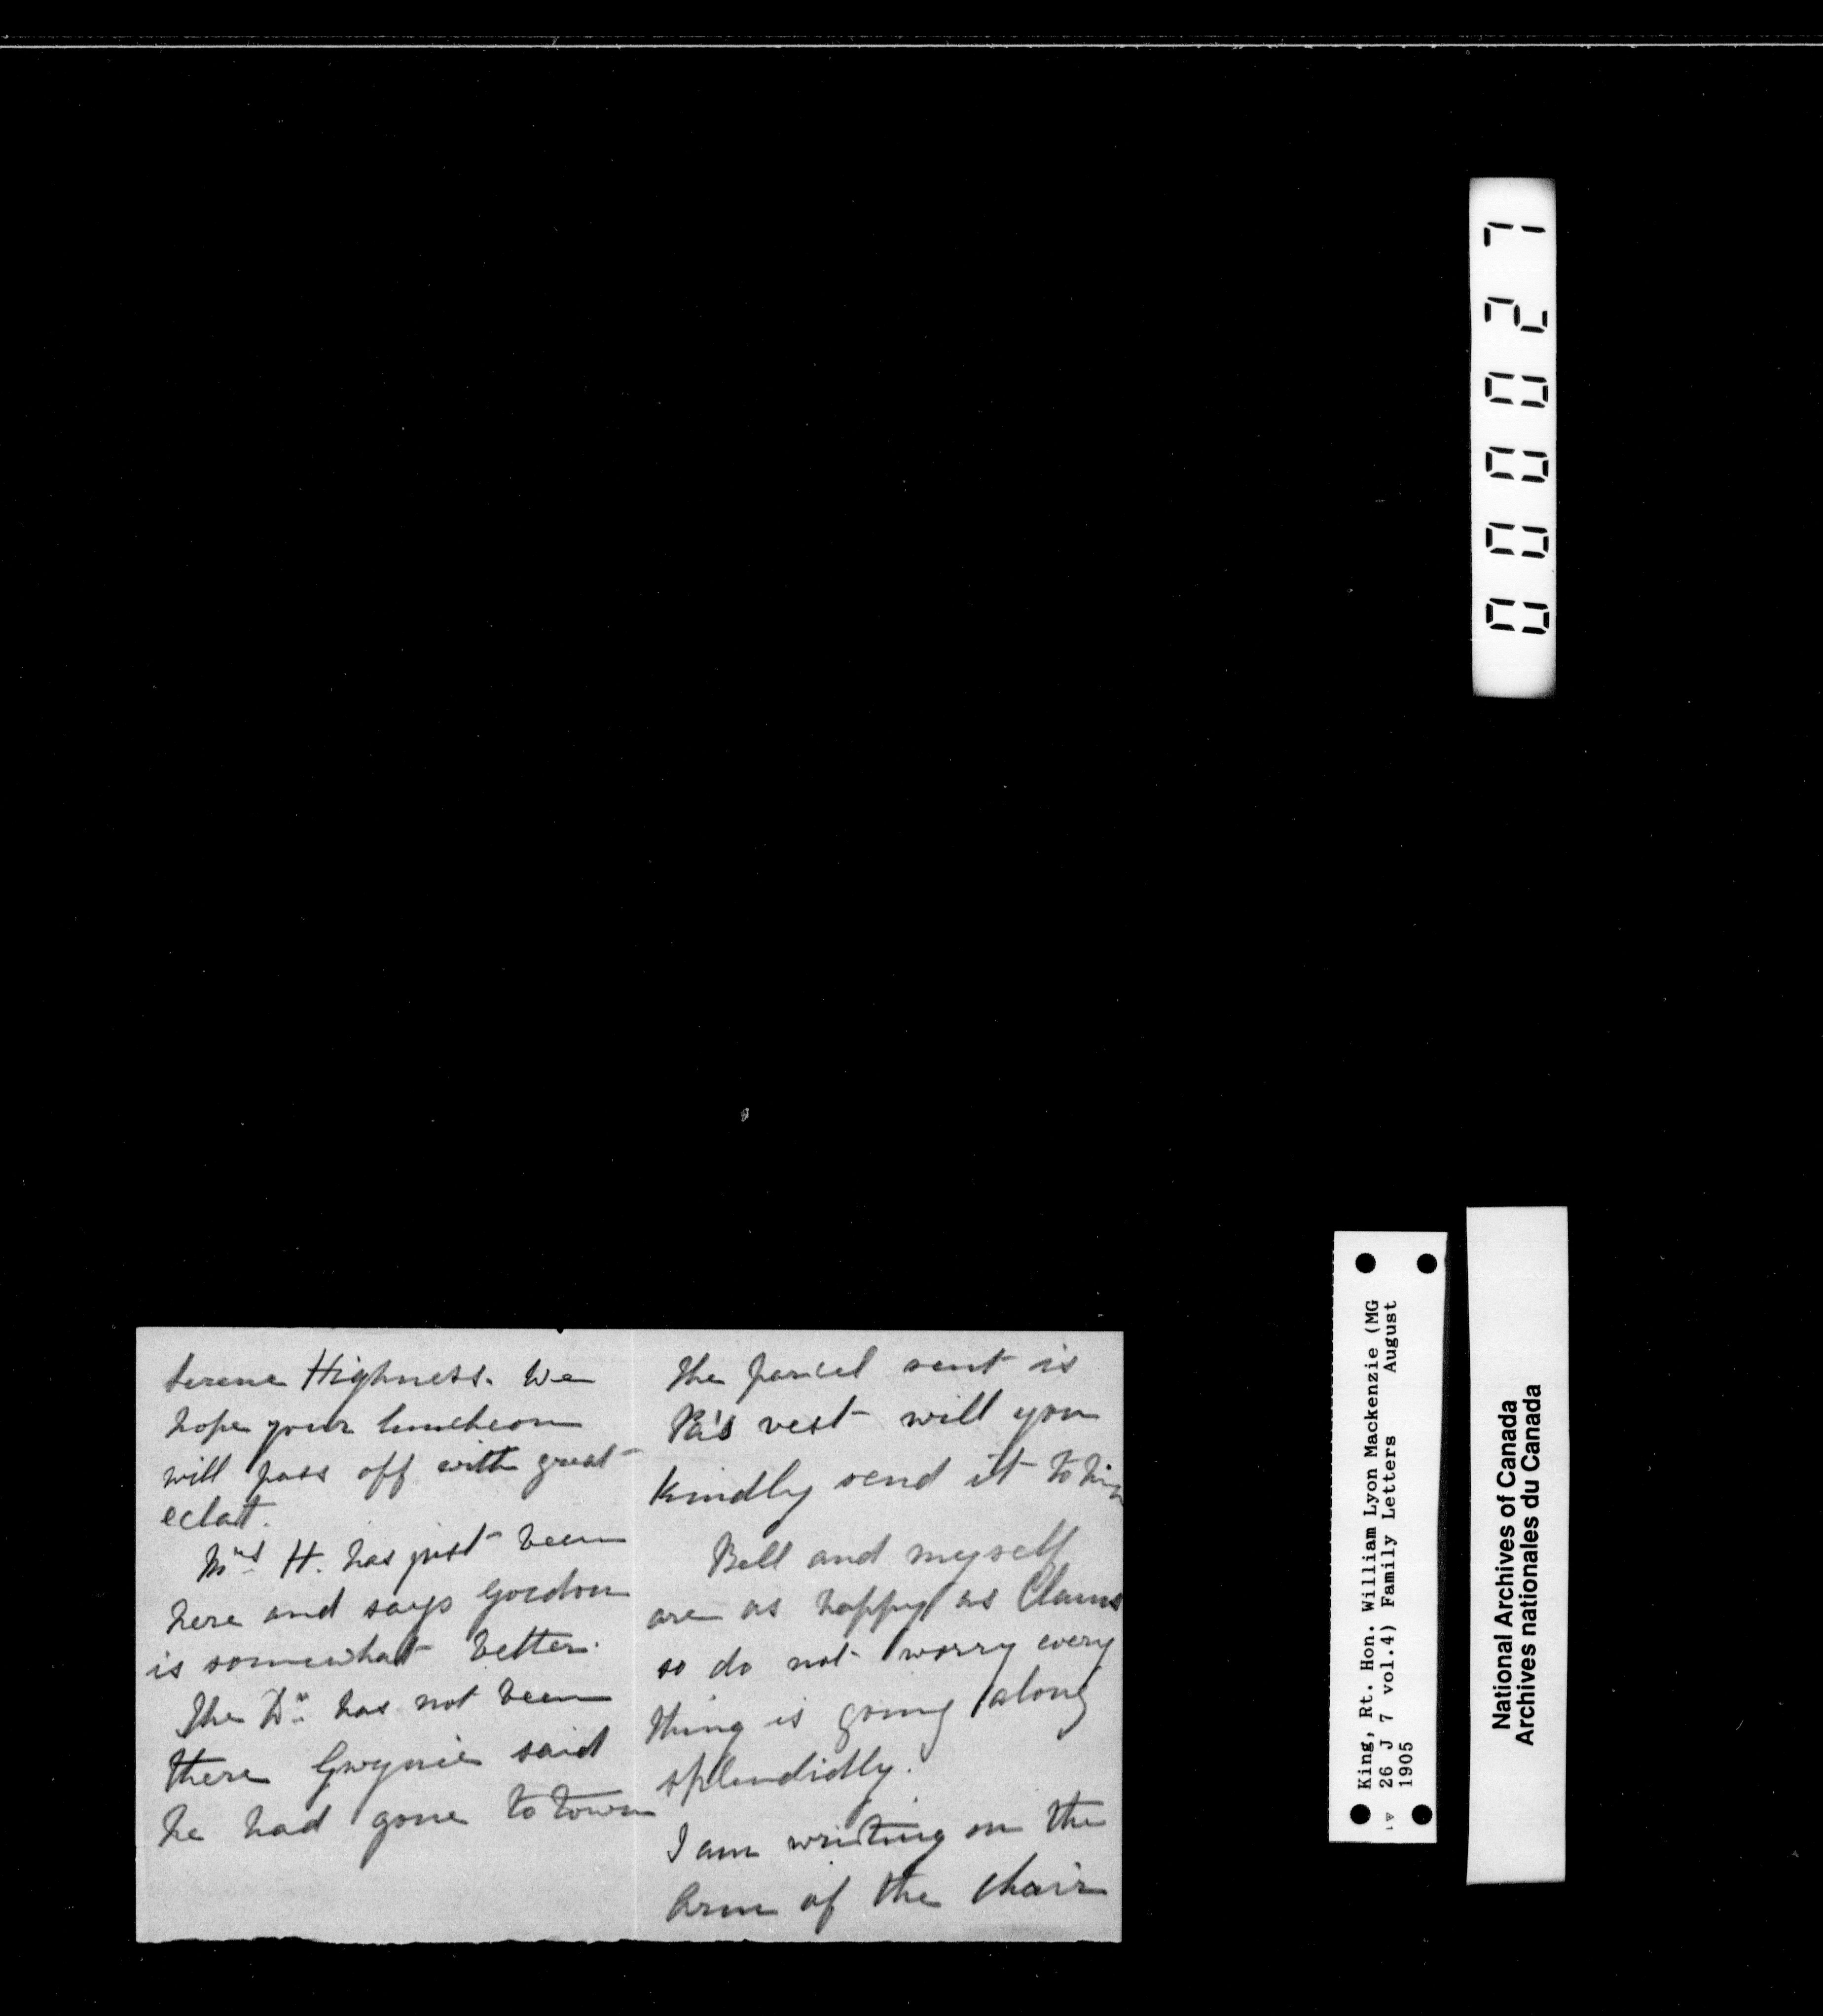 Serene Highness. We
hope your luncheon
will pass off with great
eclat.
Mrs H. has just been
here and says Gordon
is somewhat better.
The Dr. has not been
there Gwynie said
he had gone to town
The parcel sent is
Pa's vest will you
kindly send it to him
Bell and myself
are as happy as Clams
so do not worry every
thing is going along
splendidly.
I am writing on the
Arm of the chair
000027
King, Rt. Hon. William Lyon Mackenzie (MG
26 J 7 vol.4) Family Letters August
1905
National Archives of Canada
Archives nationales du Canada